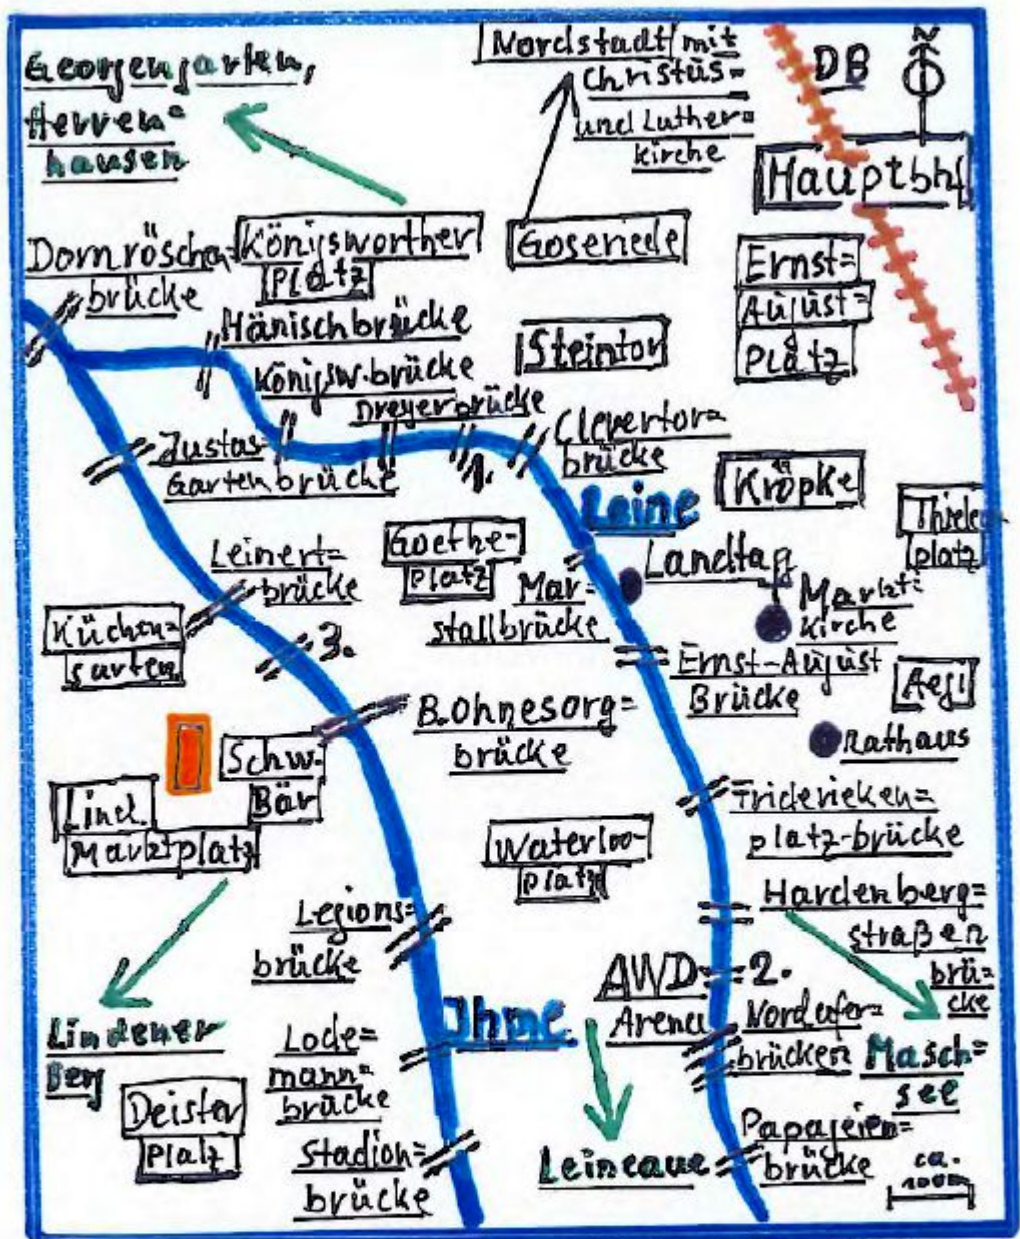 Georgengarten,
Herren=
hausen
Nordstadt mit
Christus=
und Luther=
kirche
DB
N
Hauptbhf.
Dornröschen=
brücke
Königsworther
Platz
Goseriede
Ernst=
August=
Platz
Hänischbrücke
Steintor
Königsw.brücke
Dreyerbrücke
Clevertor=
brücke
Justas-
Gartenbrücke
1.
Kröpke
Leine
Thielen
platz
Goethe-
Platz
Landtag
Leinert=
brücke
Mar=
stallbrücke
Markt=
kirche
Küchen=
garten
3.
Ernst-August
Brücke
Aegi
B.Ohnesorg=
brücke
Rathaus
Schw.
Bär
Lind.
Marktplatz
Friederieken=
platz-brücke
Waterloo-
Platz
Hardenberg=
straßen
brü=
cke
Legions=
brücke
AWD
Arena
2.
Ihme
Nordufer=
brücken
Masch=
see
Lindener
Berg
Lode=
mann=
brücke
Deister
Platz
Stadion=
brücke
Leineaue
Papageien=
brücke
ca.
100m